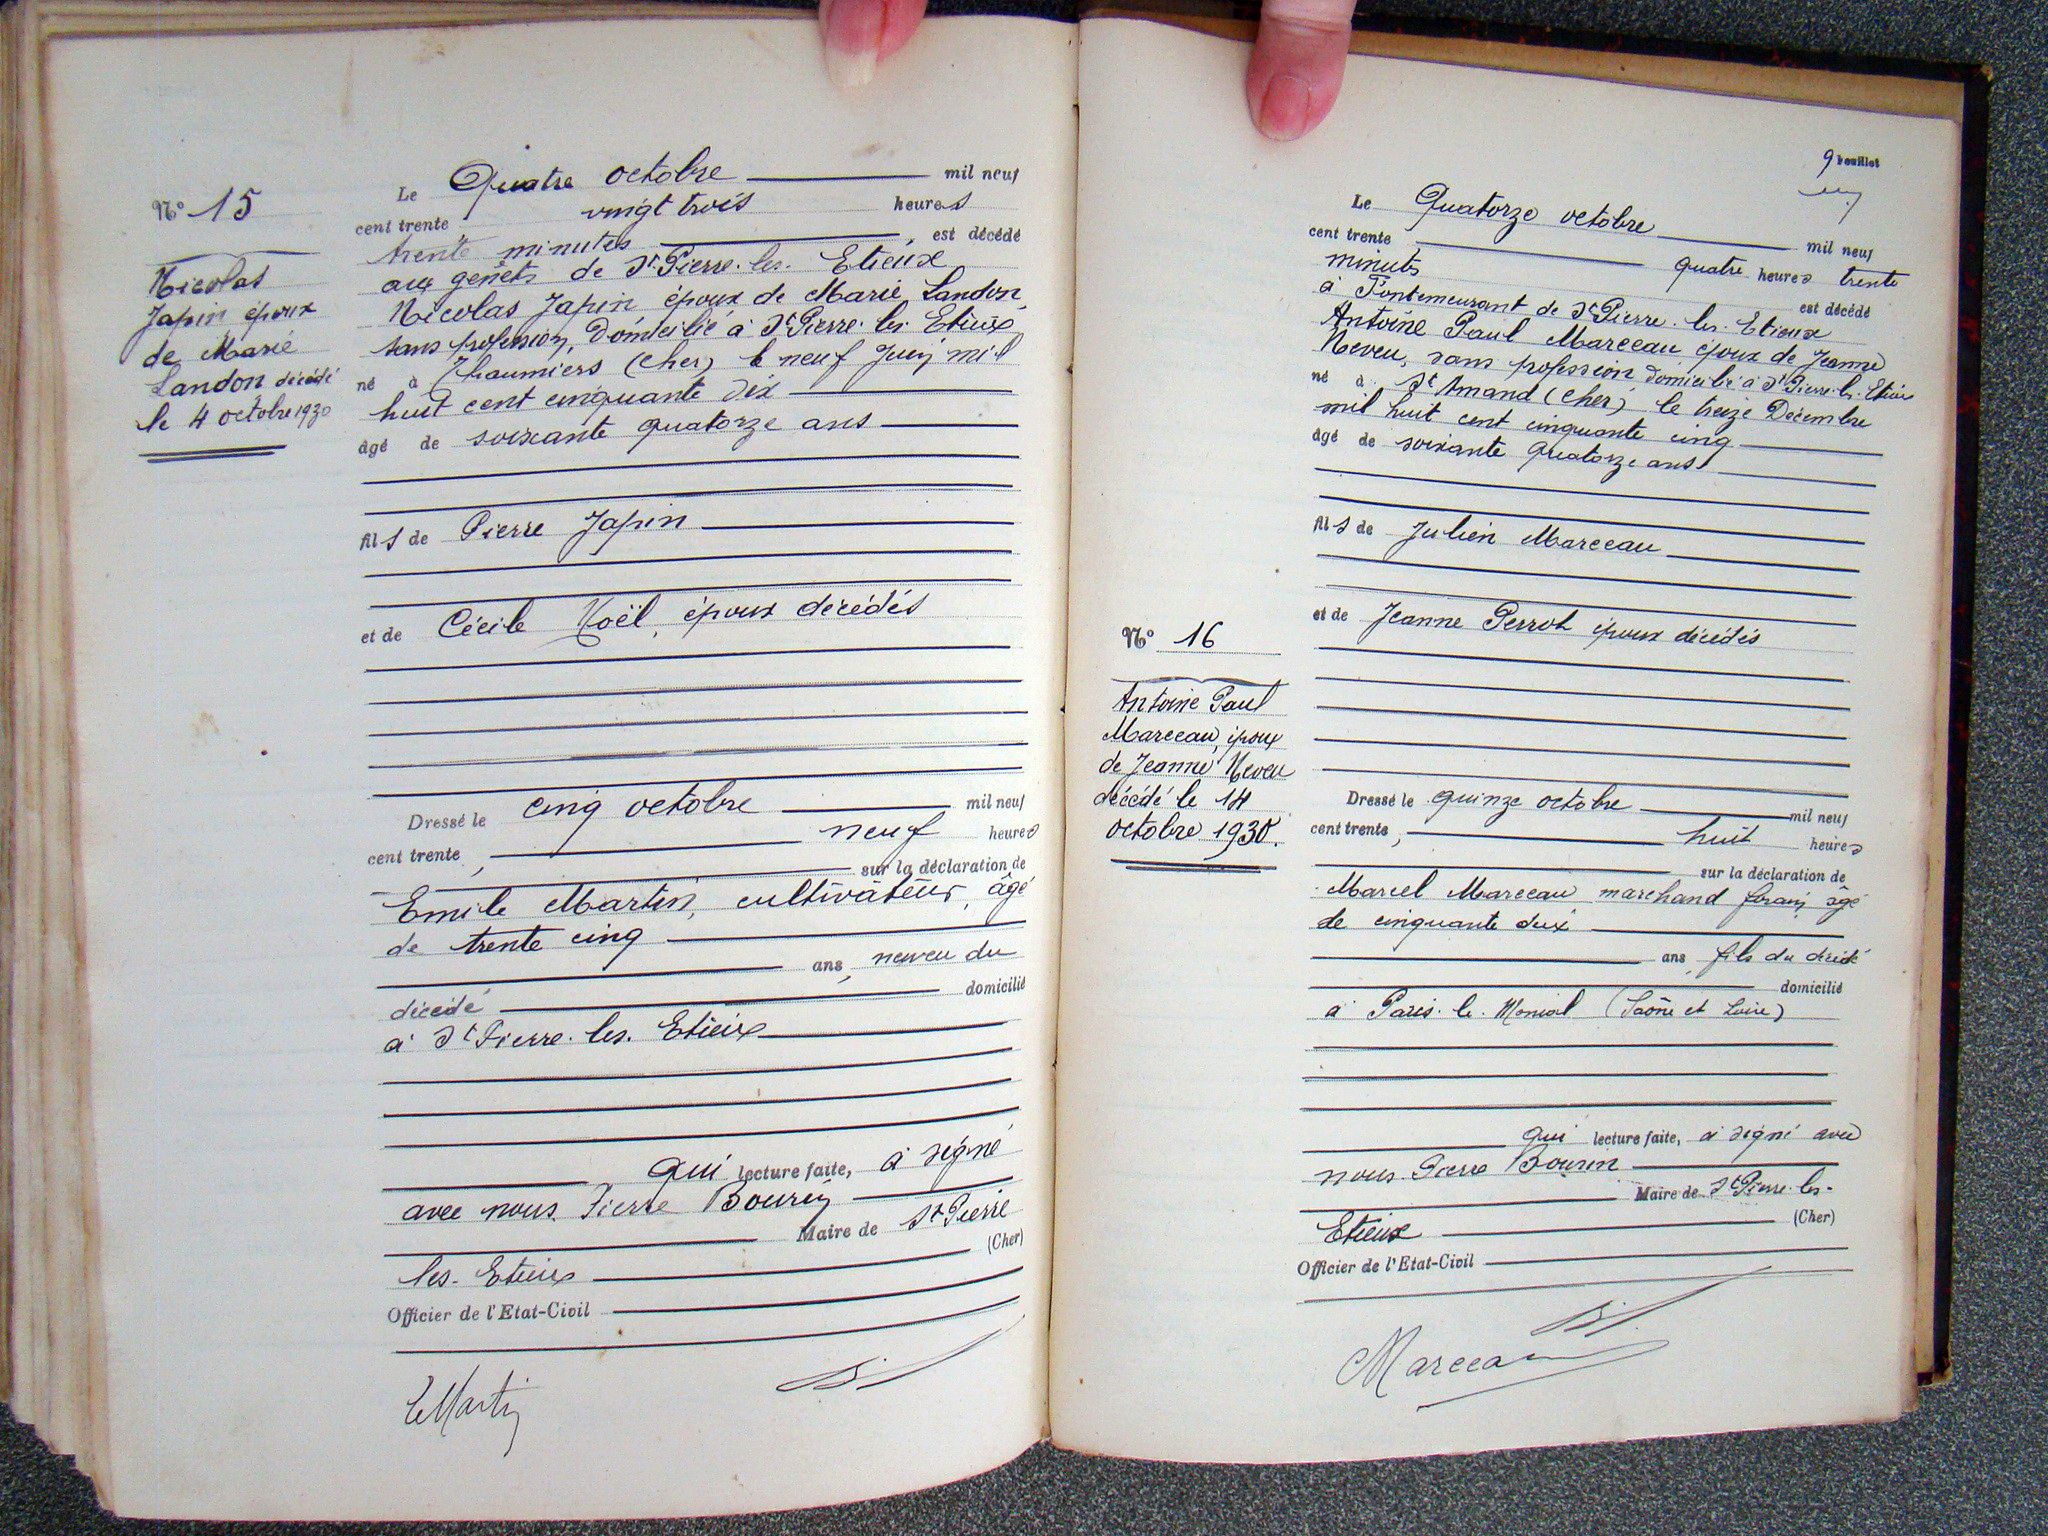 N° 15
Nicolas
Japin époux
de Marie
Landon décédé
le 4 octobre 1930
Le Quatre octobre mil neuf
cent trente vingt trois heures
trente minutes, est décédé
aux genêts de St Pierre-les-Etieux
Nicolas Japin, époux de Marie Landon,
sans profession, Domicilié à St Pierre-les-Etieux
né à Chaumiers (Cher) le neuf Juin mil
huit cent cinquante six
âgé de soixante quatorze ans
fils de Pierre Japin
et de Cécile Noël, époux décédés
Dressé le cinq octobre mil neuf
cent trente, neuf heures
sur la déclaration de
Emile Martin, cultivateur, âgé
de trente cinq
ans, neveu du
décédé domicilié
à St Pierre-les-Etieux
qui lecture faite, a signé
avec nous Pierre Bourin
Maire de St Pierre
les-Etieux (Cher)
Officier de l'Etat-Civil
E Martin
9 Feuillet
N° 16
Antoine Paul
Marceau, époux
de Jeanne Neveu
décédé le 14
octobre 1930.
Le Quatorze octobre mil neuf
cent trente quatre heures trente
minutes est décédé
à Fontemeurant de St Pierre-les-Etieux
Antoine Paul Marceau époux de Jeanne
Neveu, sans profession domicilié à St Pierre-les-Etieux
né à St Amand (Cher) le treize Décembre
mil huit cent cinquante cinq
âgé de soixante quatorze ans
fils de Julien Marceau
et de Jeanne Perrot époux décédés
Dressé le quinze octobre mil neuf
cent trente, huit heures
sur la déclaration de
Marcel Marceau marchand forain, âgé
de cinquante deux
ans, fils du décédé
domicilié
à Paris-le-Monial (Saône et Loire)
qui lecture faite, a signé avec
nous Pierre Bourin
Maire de St Pierre-les-
Etieux (Cher)
Officier de l'Etat-Civil
Marceau